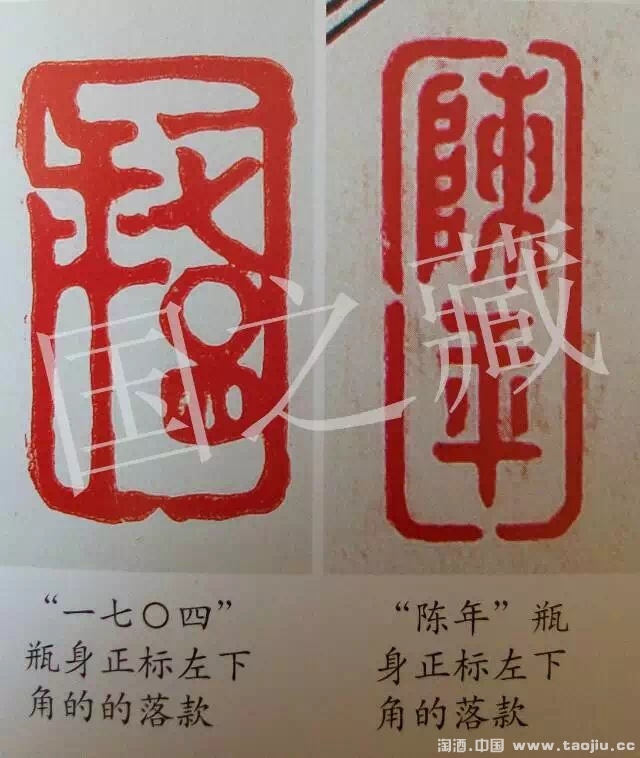 陳年
国之藏
“一七〇四”
瓶身正标左下
角的的落款
“陈年”瓶
身正标左下
角的落款
淘酒.中国 www.taojiu.cc